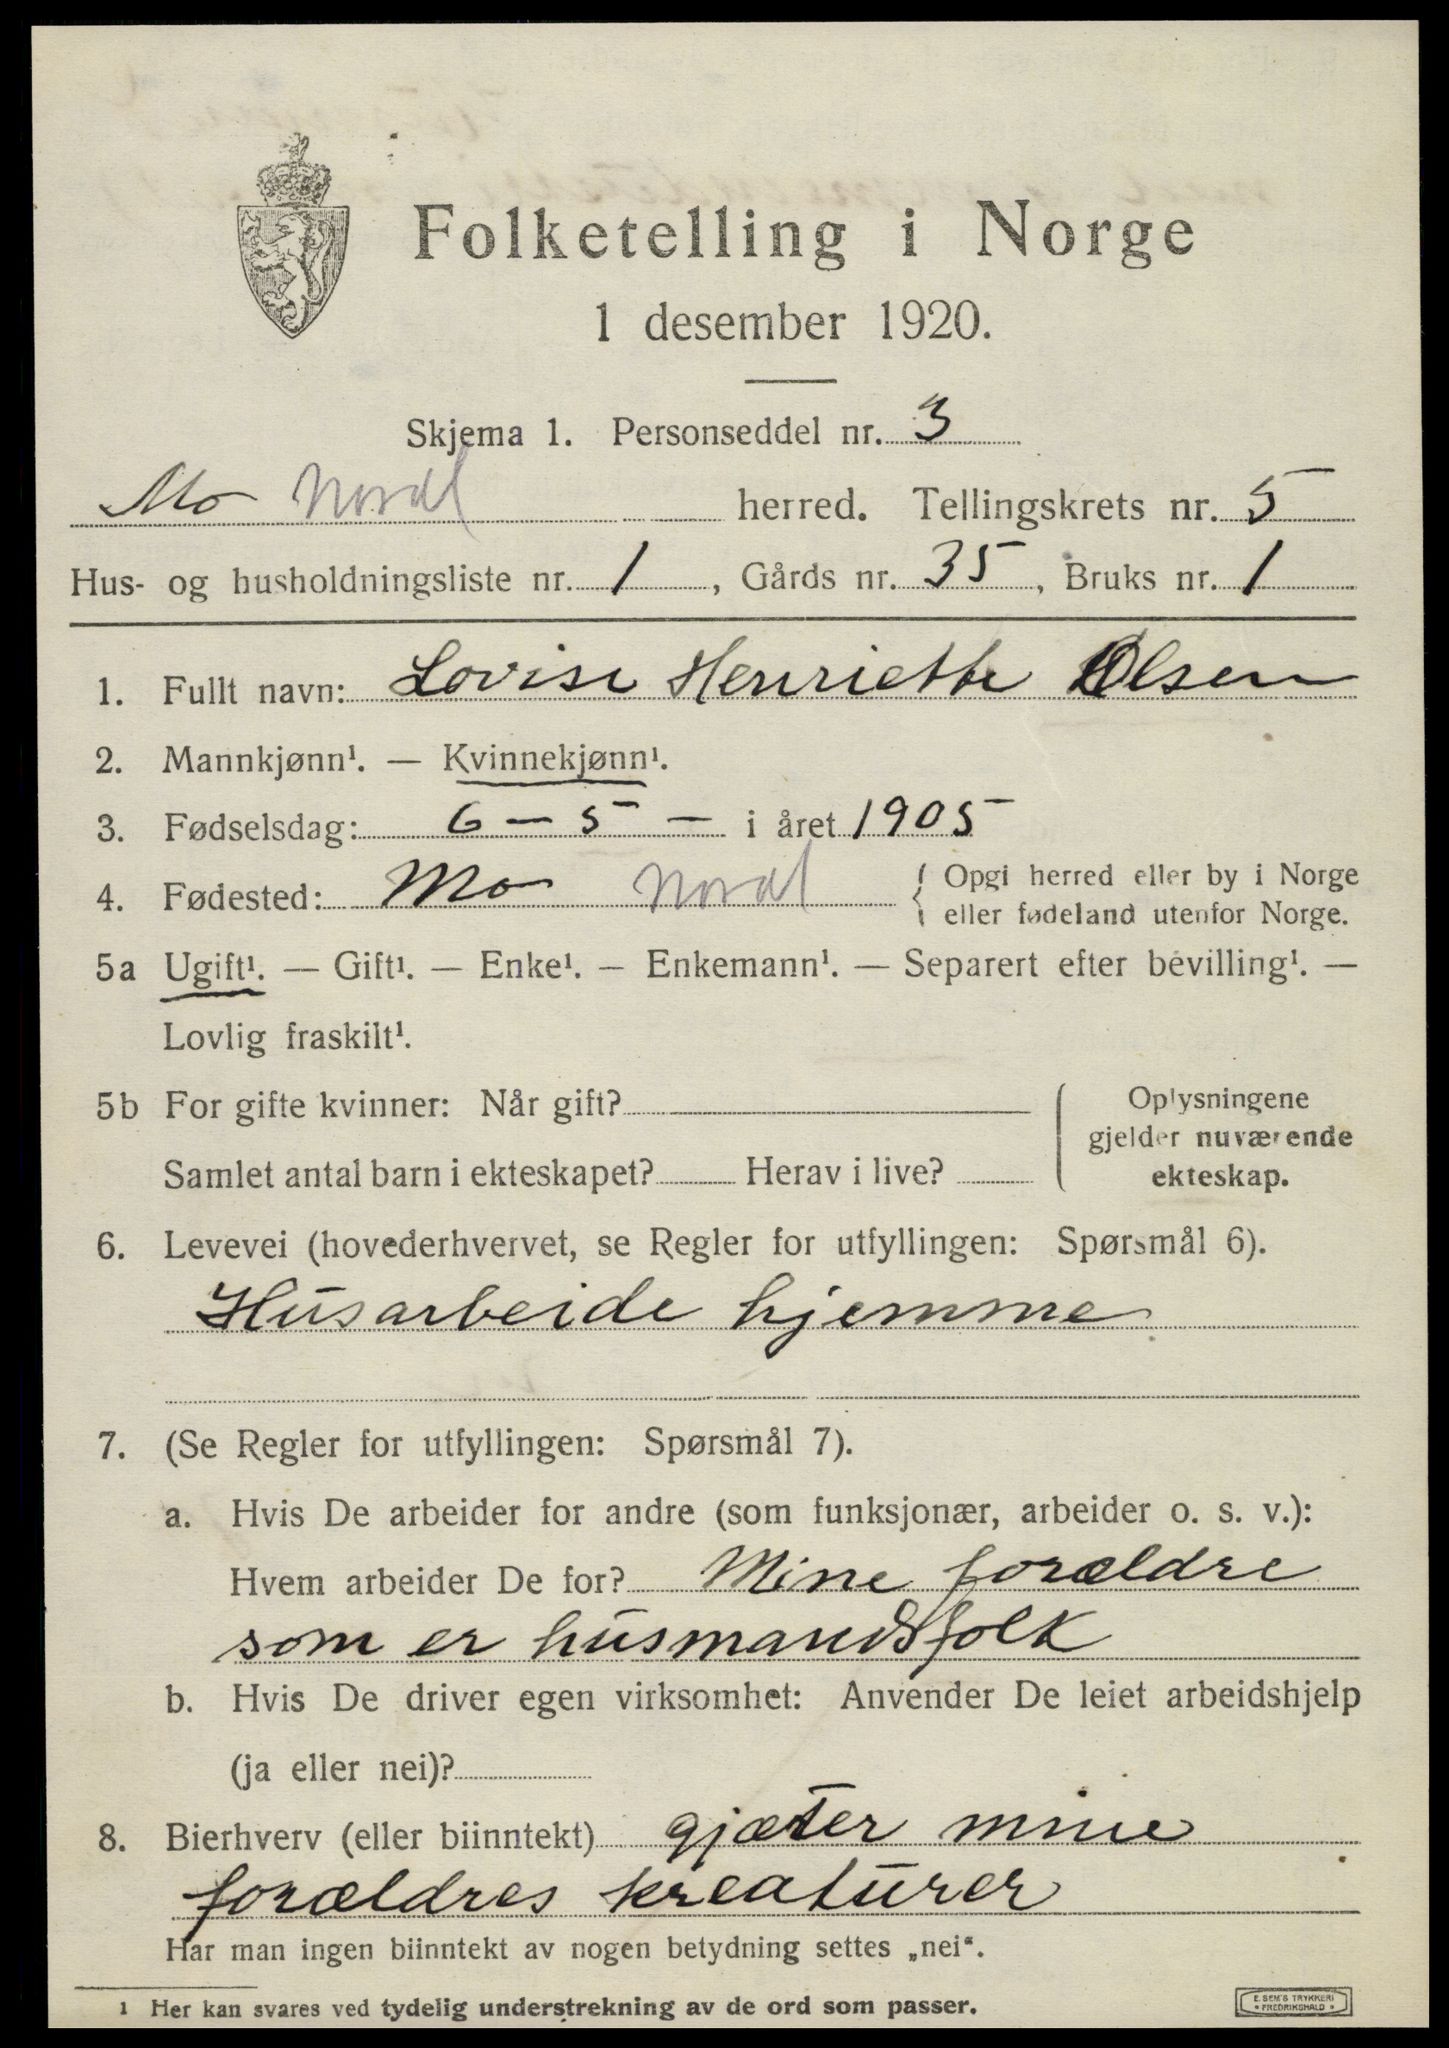 Folketelling i Norge
1 desember 1920.
Skjema 1. Personseddel nr. 3
Mo Nordl herred. Tellingskrets nr. 5
Hus- og husholdningsliste nr. 1, Gårds nr. 35, Bruks nr. 1
1. Fullt navn: Lovise Henriette Olsen
2. Mannkjønn¹. — Kvinnekjønn¹.
3. Fødselsdag: 6 — 5 — i året 1905
4. Fødested: Mo Nordl { Opgi herred eller by i Norge
eller fødeland utenfor Norge.
5a Ugift¹. — Gift¹. — Enke¹. — Enkemann¹. — Separert efter bevilling¹. —
Lovlig fraskilt¹.
5b For gifte kvinner: Når gift?
Samlet antal barn i ekteskapet? Herav i live?
Oplysningene
gjelder nuværende
ekteskap.
6. Levevei (hovederhvervet, se Regler for utfyllingen: Spørsmål 6).
Husarbeide hjemme
7. (Se Regler for utfyllingen: Spørsmål 7).
a. Hvis De arbeider for andre (som funksjonær, arbeider o. s. v.):
Hvem arbeider De for? Mine forældre
som er husmandsfolk
b. Hvis De driver egen virksomhet: Anvender De leiet arbeidshjelp
(ja eller nei)?
8. Bierhverv (eller biinntekt) gjæter mine
forældres kreaturer
Har man ingen biinntekt av nogen betydning settes „nei“.
1 Her kan svares ved tydelig understrekning av de ord som passer.
E. SEM'S TRYKKERI
FREDRIKSHALD